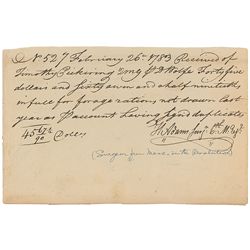 No 527 February 26th 1783 Received of
Timothy Pickering QMG Forty five
dollars and sixty seven and half ninetieths
in full for forage rations not drawn last
year as ₱ account having signed duplicates
45 67½/90 Dolls
Adams Jun
(Surgeon from Mass. in the Revolution)